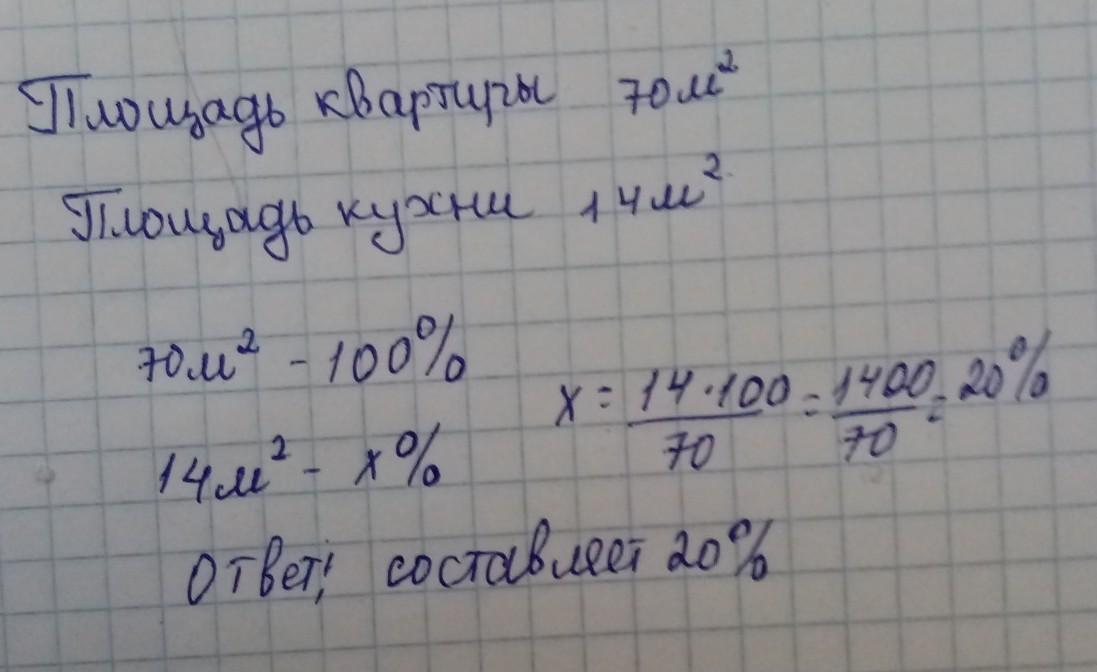 Площадь квартиры 70м²
Площадь кухни 14м²
70м² - 100%
14м² - х%
х = 14·100/70 = 1400/70 = 20%
Ответ; составляет 20%